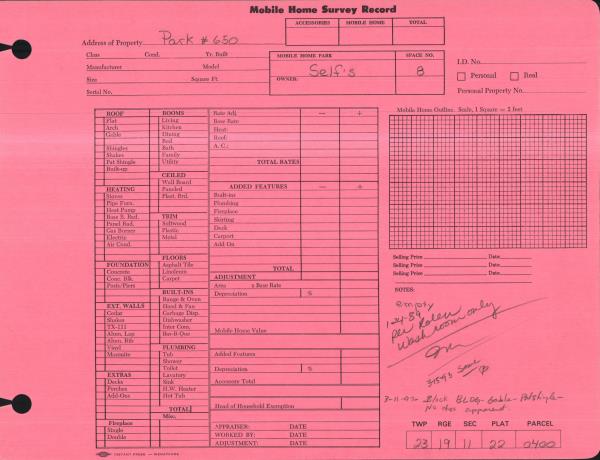 Mobile Home Survey Record
ACCESSORIES MOBILE HOME TOTAL
Address of Property Park # 650
Class Cond. Yr. Built
Manufacturer Model
Size Square Ft.
Serial No.
MOBILE HOME PARK SPACE NO.
Self's 8
OWNER:
I.D. No.
Personal Real
Personal Property No.
ROOF
Flat
Arch
Gable
Shingles
Shakes
Pat Shingle
Built-up
HEATING
Stoves
Pipe Furn.
Heat Pump
Base B. Rad.
Panel Rad.
Gas Burner
Electric
Air Cond.
FOUNDATION
Concrete
Conc. Blk.
Posts/Piers
EXT. WALLS
Cedar
Shakes
TX-111
Alum. Lap
Alum. Rib
Vinyl
Masonite
EXTRAS
Decks
Porches
Add-Ons
Fireplace
Single
Double
ROOMS
Living
Kitchen
Dining
Bed
Bath
Family
Utility
CEILED
Wall Board
Paneled
Plast. Brd.
TRIM
Softwood
Plastic
Metal
FLOORS
Asphalt Tile
Linoleum
Carpet
BUILT-INS
Range & Oven
Hood & Fan
Garbage Disp.
Dishwasher
Inter Com.
Bar-B-Que
PLUMBING
Tub
Shower
Toilet
Lavatory
Sink
H.W. Heater
Hot Tub
TOTAL
Misc.
Rate Adj. — +
Base Rate
Heat:
Roof:
A. C.:
TOTAL RATES
ADDED FEATURES — +
Built-ins
Plumbing
Fireplace
Skirting
Deck
Carport
Add On
TOTAL
ADJUSTMENT
Area x Base Rate
Depreciation %
Mobile Home Value
Added Features
Depreciation %
Accessory Total
Head of Household Exemption
APPRAISER: DATE
WORKED BY: DATE
ADJUSTMENT: DATE
Mobile Home Outline. Scale, 1 Square = 2 feet
Selling Price Date
Selling Price Date
Selling Price Date
NOTES:
empty
1-24-89
per
Wash room only
same
3-11-92 Block BLDG- Gable- Patshingle-
No Hos apparent
TWP RGE SEC PLAT PARCEL
23 19 11 22 0400